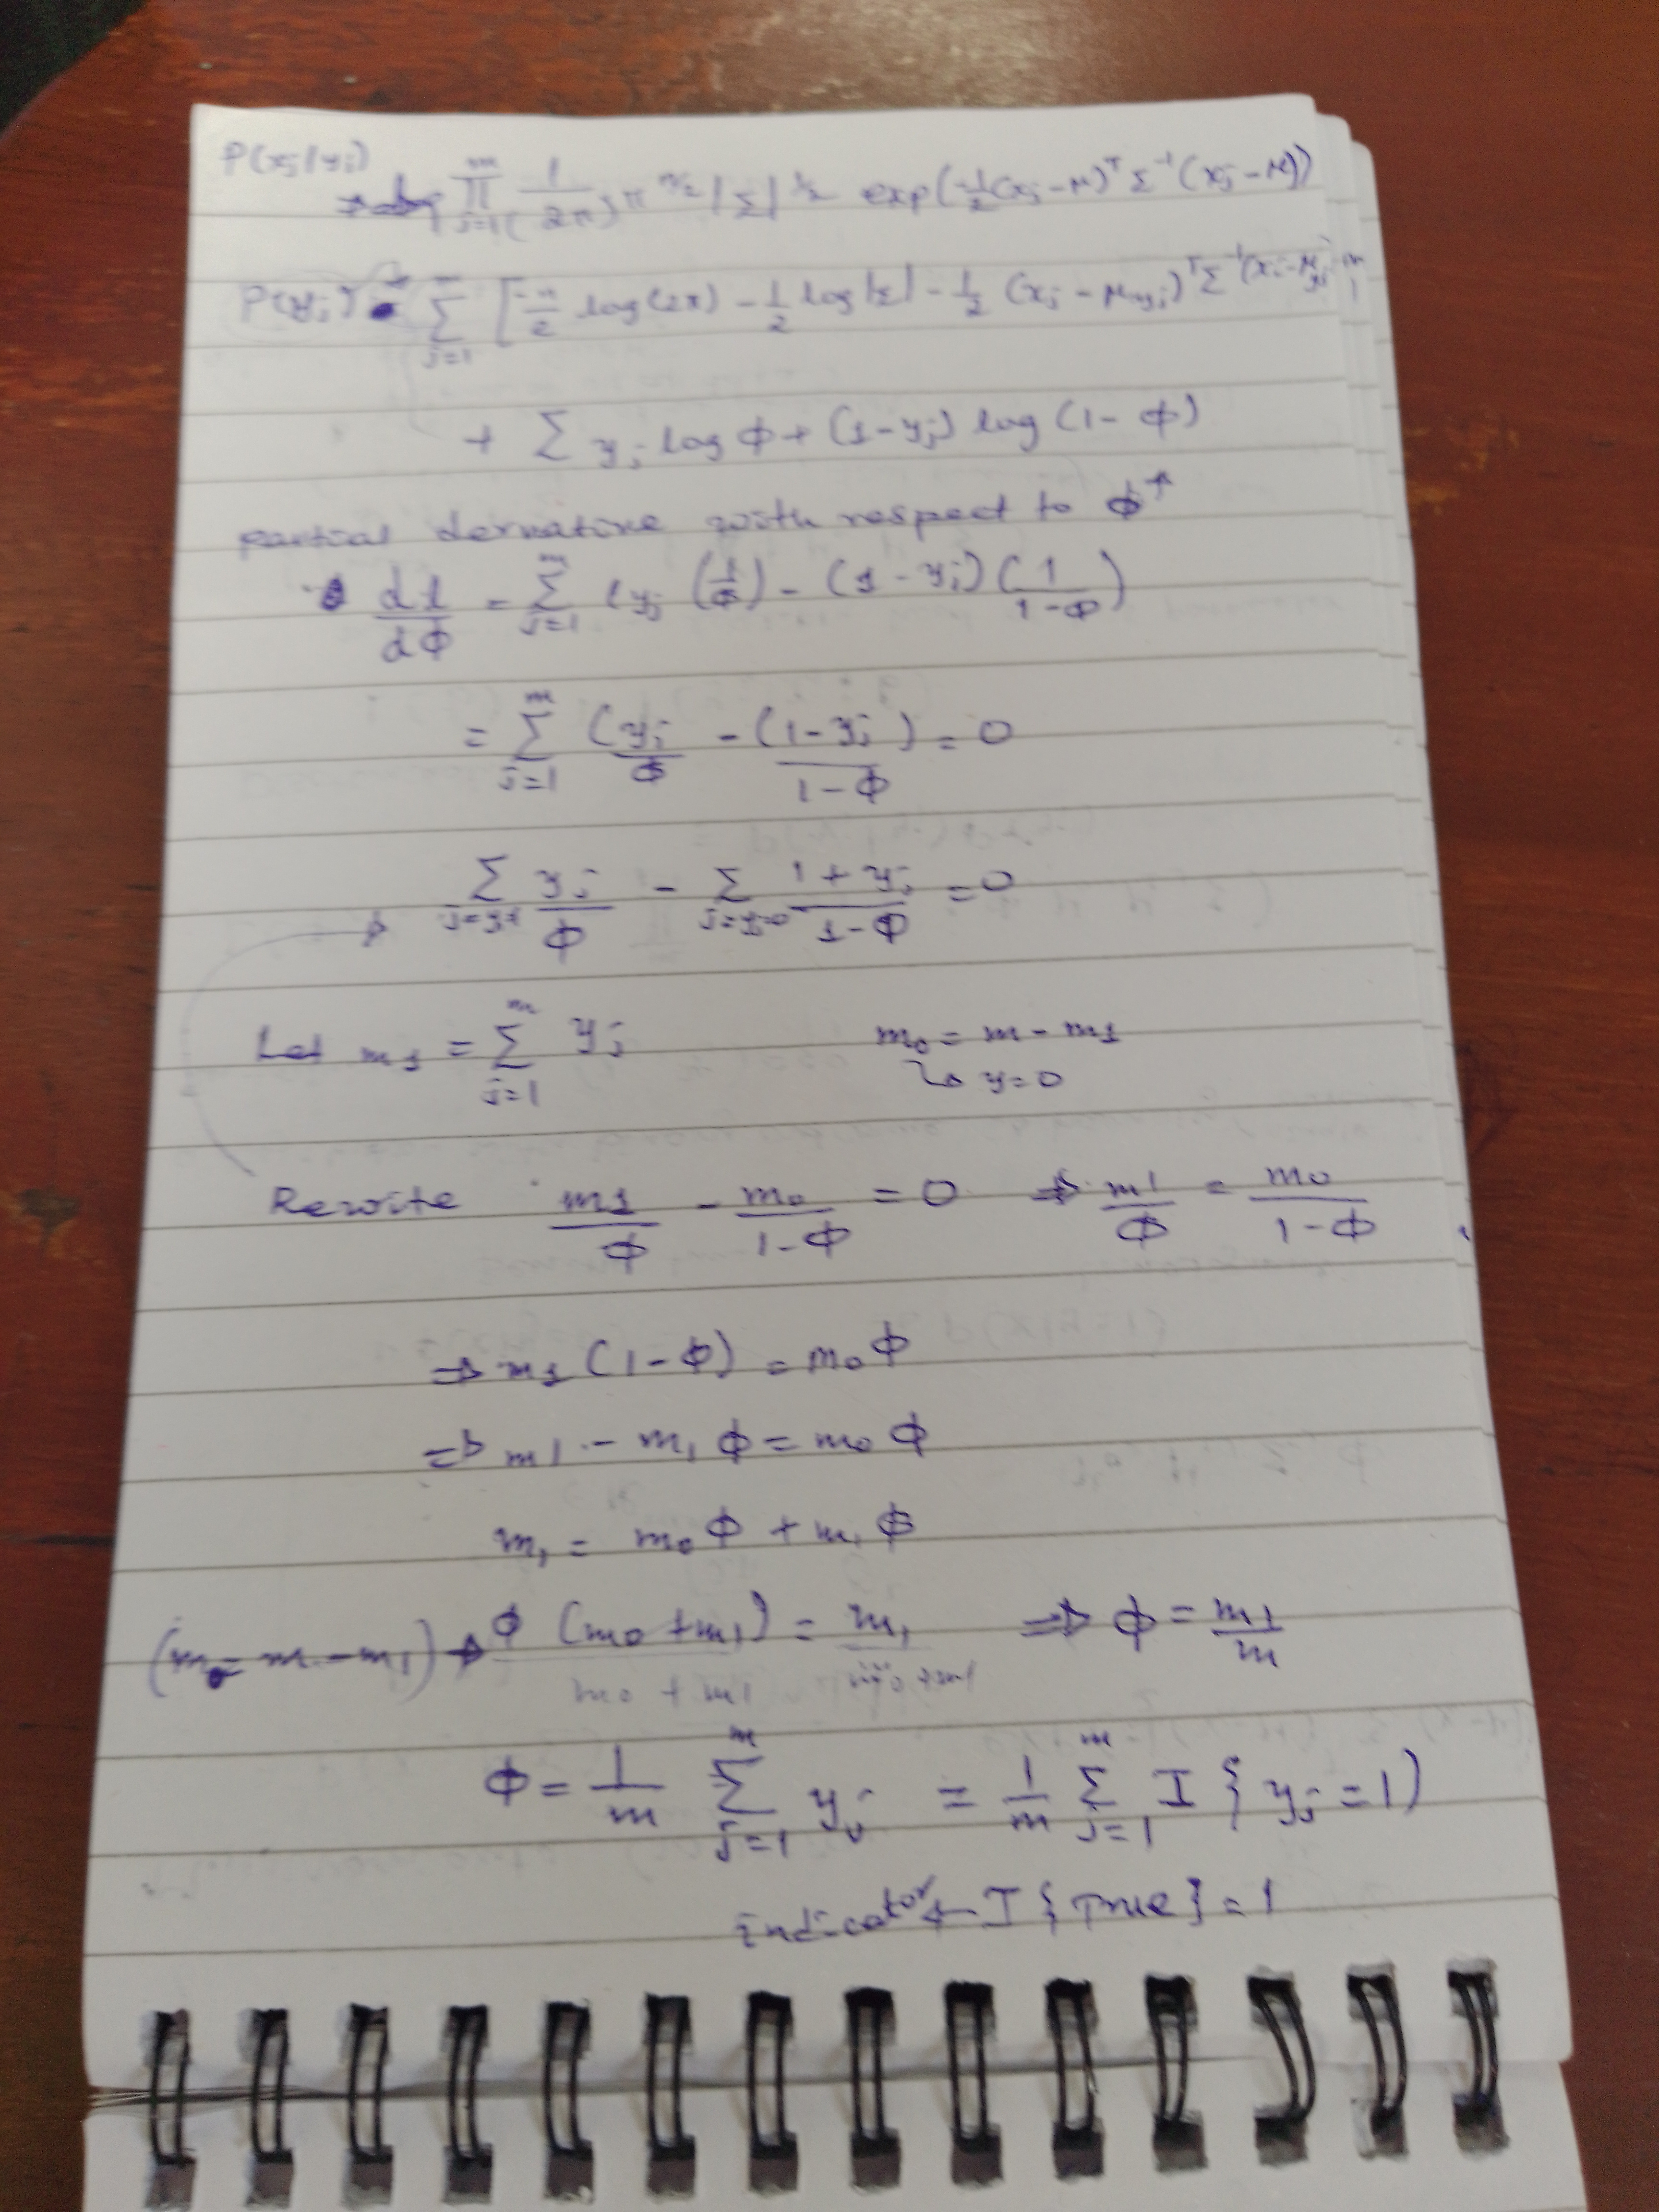 P(xj|yj)
∏_{j=1}^{m} 1/(2π)π^{n/2} |Σ|^{1/2} exp(-1/2 (xj - μ)^T Σ^{-1} (xj - μ))
P(yj) Σ_{j=1}^{m} [-n/2 log(2π) - 1/2 log|Σ| - 1/2 (xj - μyj)^T Σ^{-1} (xj - μyj)
+ Σ yj log φ + (1-yj) log (1-φ)
partial dervative with respect to φ
dl/dφ = Σ_{j=1}^{m} (yj (1/φ) - (1-yj) (1/(1-φ))
= Σ_{j=1}^{m} (yj/φ - (1-yj)/(1-φ) = 0
Σ_{j=yj=1} yj/φ - Σ_{j=yj=0} (1+yj)/(1-φ) = 0
Let m1 = Σ_{j=1}^{m} yj m0 = m - m1
↳ y=0
Rewrite m1/φ - m0/(1-φ) = 0 ⇒ m1/φ = m0/(1-φ)
⇒ m1 (1-φ) = m0 φ
⇒ m1 - m1 φ = m0 φ
m1 = m0 φ + m1 φ
(m0 = m - m1) → φ (m0 + m1)/(m0 + m1) = m1/(m0 + m1) ⇒ φ = m1/m
φ = 1/m Σ_{j=1}^{m} yj = 1/m Σ_{j=1}^{m} I { yj = 1)
indicator ← I { True } = 1